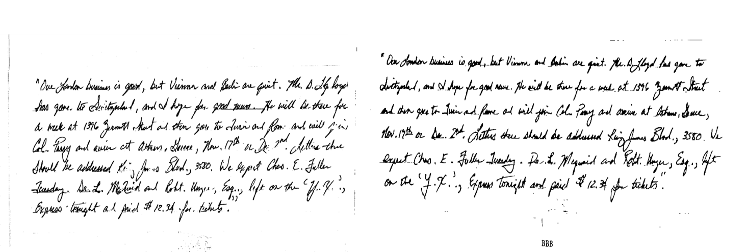 "Our London business is good, but Vienna and Berlin are quiet. Mr. D. Lloyd
has gone to Switzerland, and I hope for good news. He will be there for
a week at 1496 Zermott Street and then goes to Turin and Rome and will join
Col. Parry and arrive at Athens, Greece, Nov. 27th or Dec. 2nd. Letters there
should be addressed King James Blvd., 3580. We expect Chas. E. Fuller
Tuesday. Dr. L. McQuaid and Robt. Unger, Esq., left on the 'Y.X.',
Express tonight and paid $12.34 for tickets."
"Our London business is good, but Vienna and Berlin are quiet. Mr. D. Lloyd has gone to
Switzerland, and I hope for good news. He will be there for a week at 1496 Zermott Street
and then goes to Turin and Rome and will join Col. Parry and arrive at Athens, Greece,
Nov. 27th or Dec. 2nd. Letters there should be addressed King James Blvd., 3580. We
expect Chas. E. Fuller Tuesday. Dr. L. McQuaid and Robt. Unger, Esq., left
on the 'Y.X.', Express tonight and paid $12.34 for tickets."
BBB